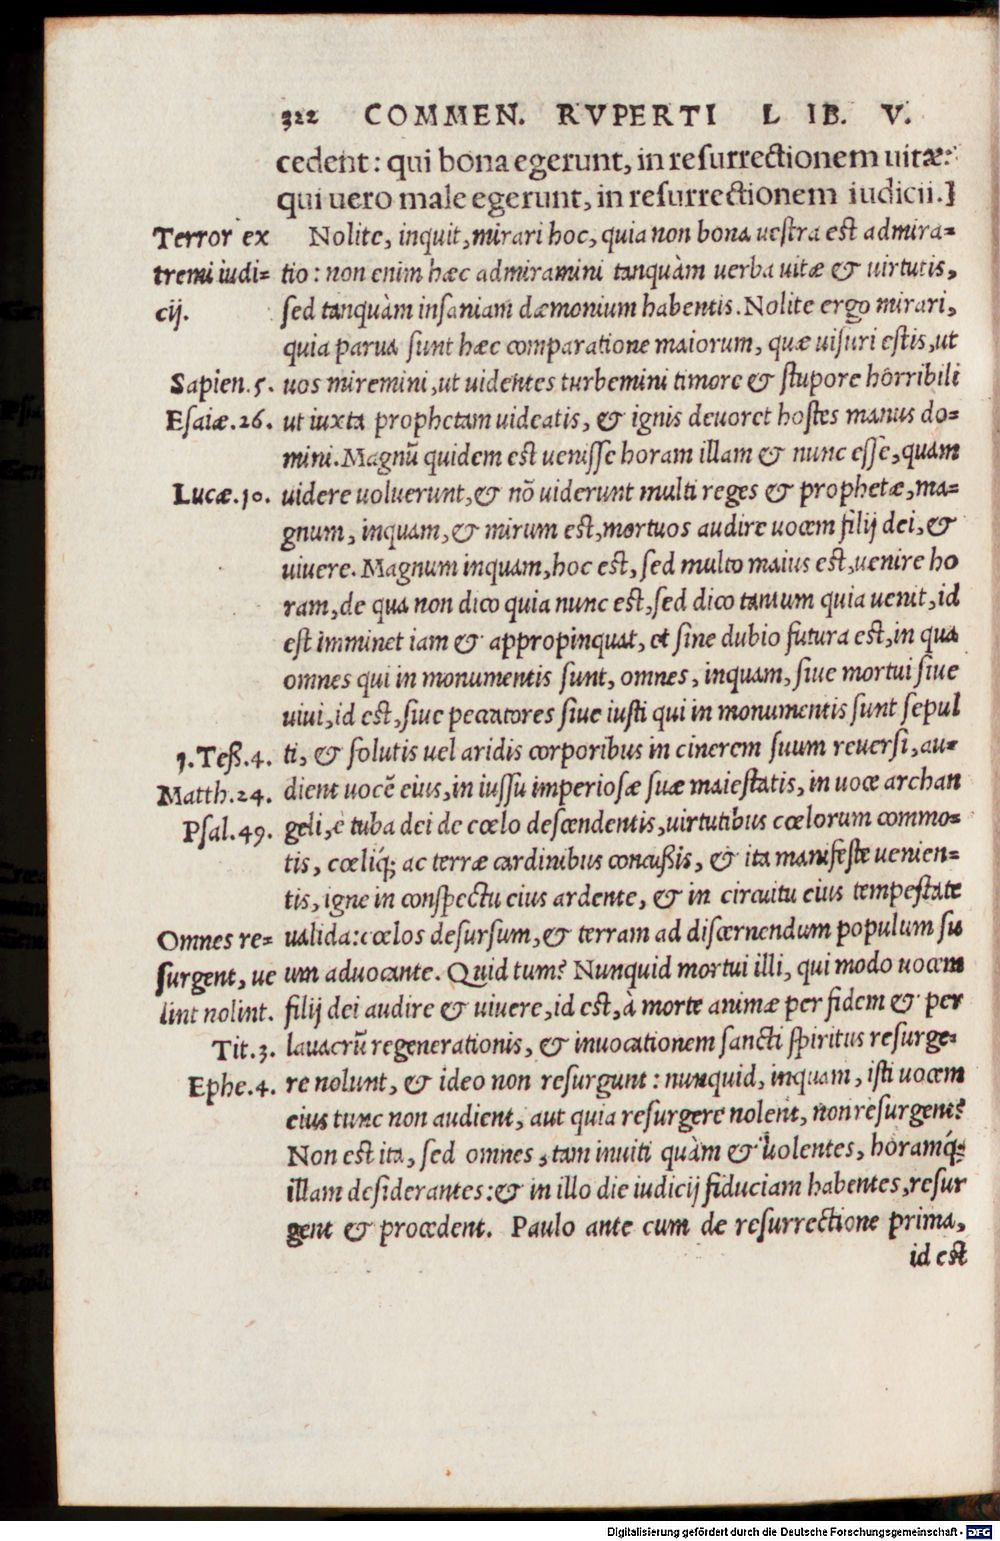 322 COMMEN. RVPERTI LIB. V.
cedent: qui bona egerunt, in resurrectionem uitæ:
qui uero male egerunt, in resurrectionem iudicii.]
Terror ex
tremi iudi=
cij.
Nolite, inquit, mirari hoc, quia non bona uestra est admira=
tio: non enim hæc admiramini tanquàm uerba uitæ & uirtutis,
sed tanquàm insaniam dæmonium habentis. Nolite ergo mirari,
quia parua sunt hæc comparatione maiorum, quæ uisuri estis, ut
Sapien. 5.
uos miremini, ut uidentes turbemini timore & stupore horribili
Esaiæ. 26.
ut iuxta prophetam uideatis, & ignis deuoret hostes manus do=
mini. Magnũ quidem est uenisse horam illam & nunc esse, quàm
Lucæ. 10.
uidere uoluerunt, & nõ uiderunt multi reges & prophetæ, ma=
gnum, inquam, & mirum est, mortuos audire uocem filij dei, &
uiuere. Magnum inquam, hoc est, sed multo maius est, uenire ho
ram, de qua non dico quia nunc est, sed dico tantum quia uenit, id
est imminet iam & appropinquat, et sine dubio futura est, in qua
omnes qui in monumentis sunt, omnes, inquam, siue mortui siue
uiui, id est, siue peccatores siue iusti qui in monumentis sunt sepul
1. Teß. 4.
ti, & solutis uel aridis corporibus in cinerem suum reuersi, au=
Matth. 24.
dient uocẽ eius, in iussu imperiosæ suæ maiestatis, in uoce archan
Psal. 49.
geli, e tuba dei de cœlo descendentis, uirtutibus cœlorum commo=
tis, cœliq́; ac terræ cardinibus concußis, & ita manifeste uenien=
tis, igne in conspectu eius ardente, & in circuitu eius tempestate
Omnes re=
surgent, ue
lint nolint.
ualida: cœlos desursum, & terram ad discernendum populum su
um aduocante. Quid tum? Nunquid mortui illi, qui modo uocem
filij dei audire & uiuere, id est, à morte animæ per fidem & per
Tit. 3.
lauacrũ regenerationis, & inuocationem sancti spiritus resurge=
Ephe. 4.
re nolunt, & ideo non resurgunt: nunquid, inquam, isti uocem
eius tunc non audient, aut quia resurgere nolent, non resurgent?
Non est ita, sed omnes, tam inuiti quàm & uolentes, horamq́;
illam desiderantes: & in illo die iudicij fiduciam habentes, resur
gent & procedent. Paulo ante cum de resurrectione prima,
id est
Digitalisierung gefördert durch die Deutsche Forschungsgemeinschaft - DFG